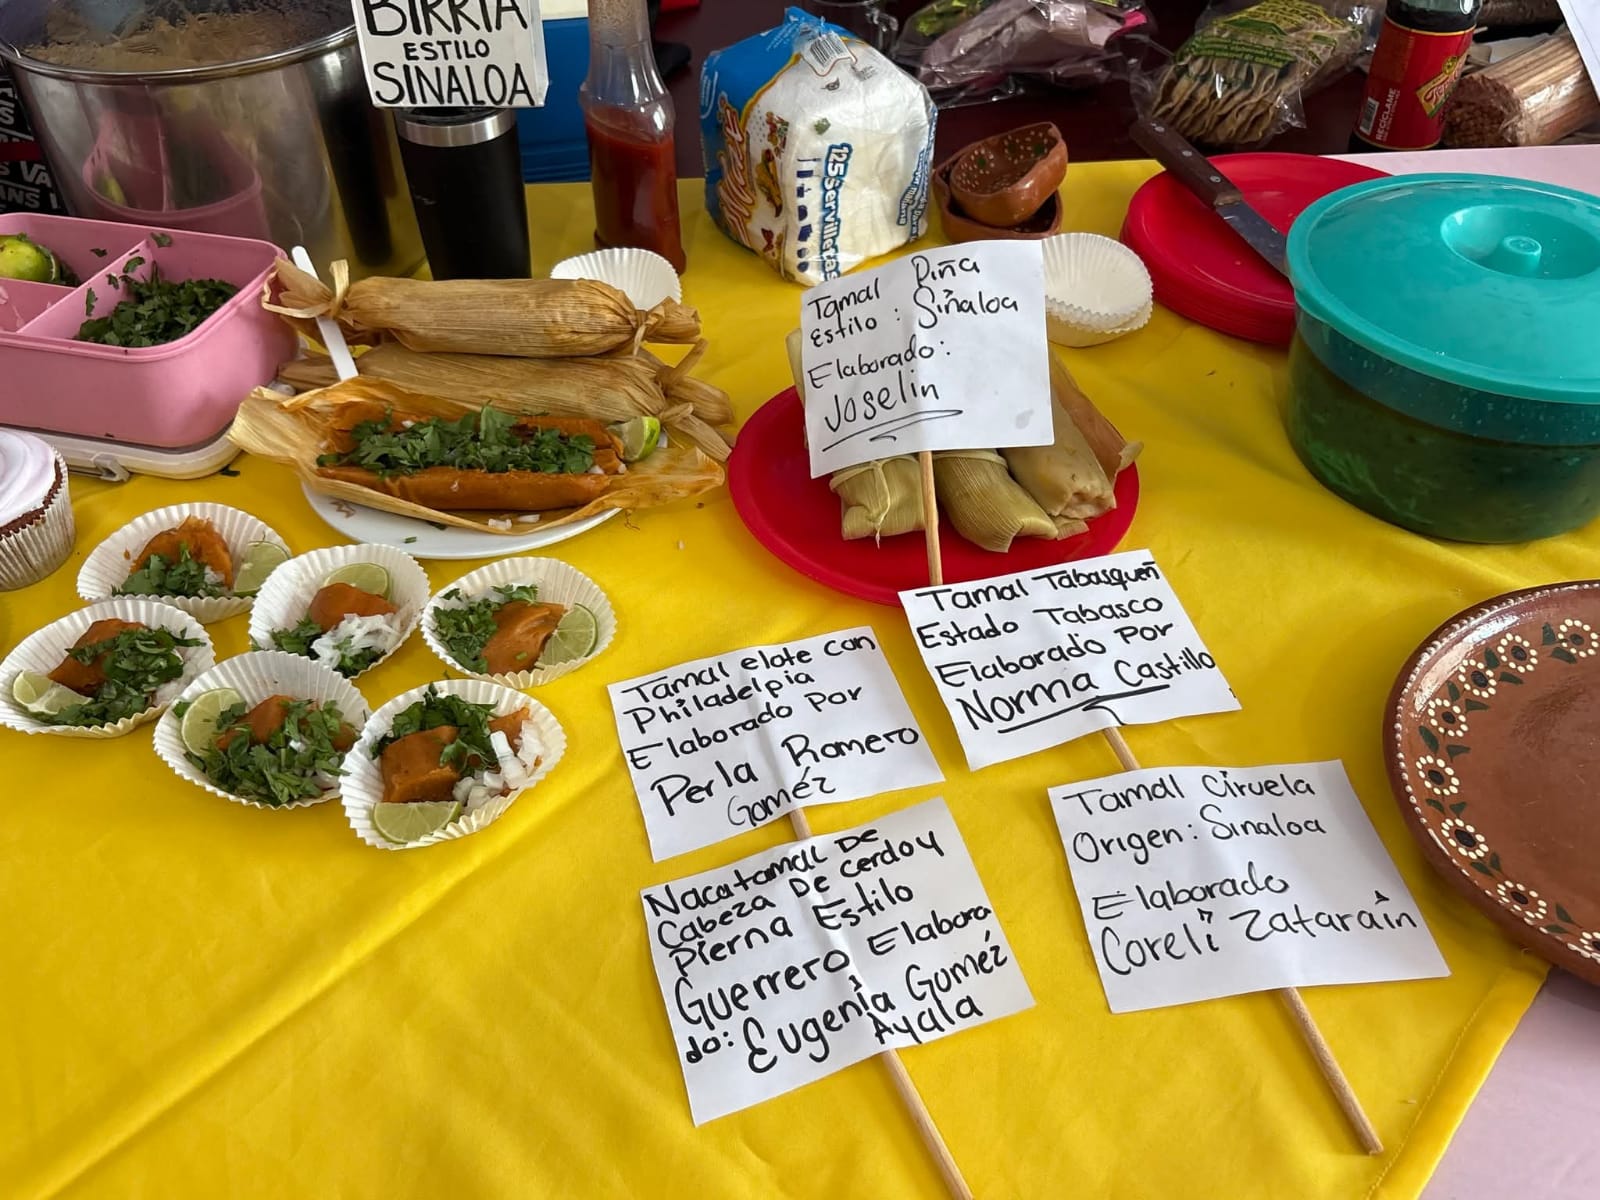 BIRRIA
ESTILO
SINALOA
125 servilletas
RECICLAME
Tamal Piña
Estilo: Sinaloa
Elaborado:
Joselin
Tamal Tabasqueñ
Estado Tabasco
Elaborado Por
Norma Castillo
Tamal elote con
Philadelpia
Elaborado Por
Perla Romero
Goméz
Nacatamal De
Cabeza De Cerdo y
Pierna Estilo
Guerrero Elabora
do: Eugenia Goméz
Ayala
Tamal Ciruela
Origen: Sinaloa
Elaborado
Coreli Zatarain